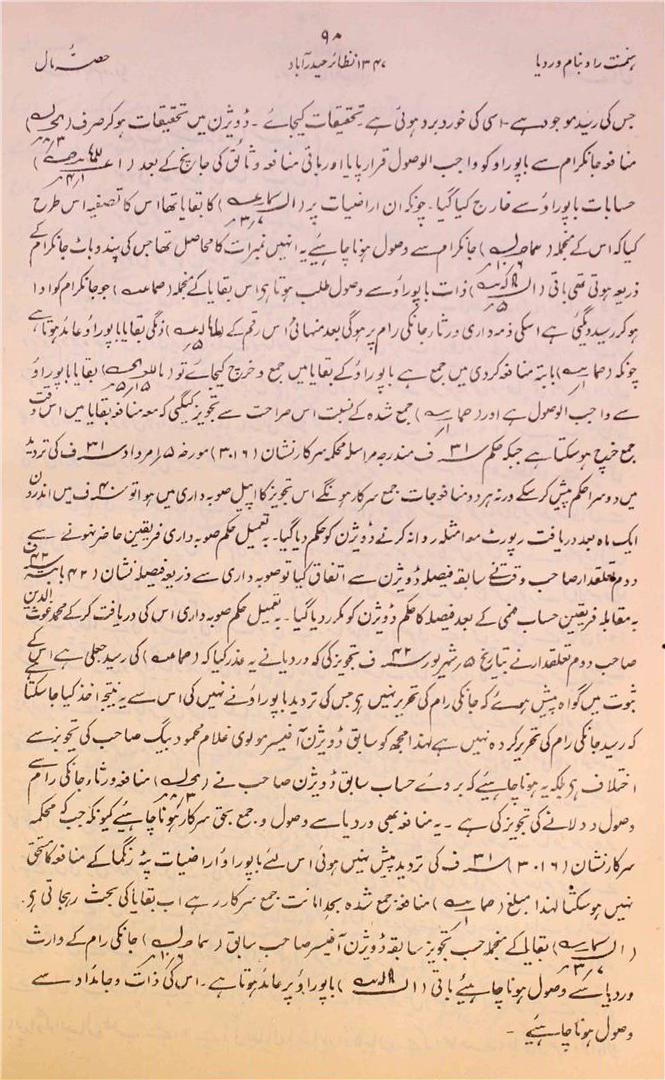 ۹۸
ہنمنت راؤ بنام وردیا ۱۳۴۷ نظائر حیدرآباد حصہ مال
جس کی رسید موجود ہے۔ اسی کی خورد برد ہوئی ہے۔ تحقیقات کیجائے۔ ڈویژن میں تحقیقات ہوکر صرف
منافعہ جانکی رام سے باپوراؤ کو واجب الوصول قرار پایا اور باقی منافعہ وثائق کی جانچ کے بعد
حسابات باپوراؤ سے خارج کیا گیا۔ چونکہ ان اراضیات پر کا بقایا تھا اس کا تصفیہ اس طرح
کیا کہ اس کے منجملہ جانکی رام سے وصول ہونا چاہئے یہ انہیں نمبرات کا محاصل تھا جس کی پندوباٹ جانکی رام کے
ذریعہ ہوتی تھی باقی ذات باپوراؤ سے وصول طلب ہوتا ہی اس بقایا کے منجملہ جو جانکی رام کو ادا
ہوکر رسید دیگئی ہے اسکی ذمہ داری ورثاء جانکی رام پر ہوگی بعد منہائی اس رقم کے ڈگی بقایا باپوراؤ عائد ہوتا ہے
چونکہ بابتہ منافعہ کردی میں جمع ہے باپوراؤ کے بقایا میں جمع و خرچ کیجائے تو بقایا باپوراؤ
سے واجب الوصول ہے اور جمع شدہ کے نسبت اس صراحت سے تجویز کیگئی کہ منافعہ بقایا میں اس وقت
جمع خرچ ہوسکتا ہے جبکہ حکم ۳۱ ف مندرجہ مراسلہ محکمہ سرکار نشان (۳۰۱۶) مورخہ ۱۵ امرداد ۳۱ ف کی تردید
میں دوسرا حکم پیش کرسکے ورنہ ہر دو منافوجات جمع سرکار ہونگے اس تجویز کا اپیل صوبہ داری میں ہوا تو ۴۰ ف میں اندرون
ایک ماہ بعد دریافت رپورٹ معہ امثلہ روانہ کرنے ڈویژن کو حکم دیا گیا۔ بہ تعمیل حکم صوبہ داری فریقین حاضر نہونے سے
دوم تعلقدار صاحب وقت نے سابقہ فیصلہ ڈویژن سے اتفاق کیا تو صوبہ داری سے ذریعہ فیصلہ نشان (۴۲ بابتہ ۴۲ ف
بہ مقابلہ فریقین حساب فہمی کے بعد فیصلہ کا حکم ڈویژن کو مکرر دیا گیا۔ بہ تعمیل حکم صوبہ داری اس کی دریافت کرکے محمد غوث الدین
صاحب دوم تعلقدار نے بتاریخ ۵ شہریور ۴۲ ف تجویز کی کہ وردیا نے یہ عذر کیا کہ کی رسید جعلی ہے اس کے
ثبوت میں گواہ پیش ہوئے کہ جانکی رام کی تحریر نہیں ہی جس کی تردید باپوراؤ نے نہیں کی اس سے یہ نتیجہ اخذ کیا جاسکتا ہے
کہ رسید جانکی رام کی تحریر کردہ نہیں ہے لہذا مجھ کو سابق ڈویژن آفیسر مولوی غلام محمود بیگ صاحب کی تجویز سے
اختلاف ہی بلکہ یہ ہونا چاہئے کہ بروئے حساب سابق ڈویژن صاحب نے منافعہ ورثاء جانکی رام سے
وصول و دلانے کی تجویز کی ہے۔ یہ منافعہ بھی وردیا سے وصول و جمع بحق سرکار ہونا چاہئے کیونکہ جب کہ محکمہ
سرکار نشان (۳۰۱۶) ۳۱ ف کی تردید پیش نہیں ہوئی اس لئے باپوراؤ اراضیات پٹہ رنگما کے منافعہ کا مستحق
نہیں ہوسکتا لہذا مبلغ منافعہ جمع شدہ بمد امانت جمع سرکار رہے اب بقایا کی بحث رہجاتی ہی۔
بقایا کے منجملہ حسب تجویز سابقہ ڈویژن آفیسر صاحب سابق جانکی رام کے وارث
وردیا سے وصول ہونا چاہئیے باقی باپوراؤ پر عائد ہوتا ہے۔ اس کی ذات وجائداد سے
وصول ہونا چاہئیے۔